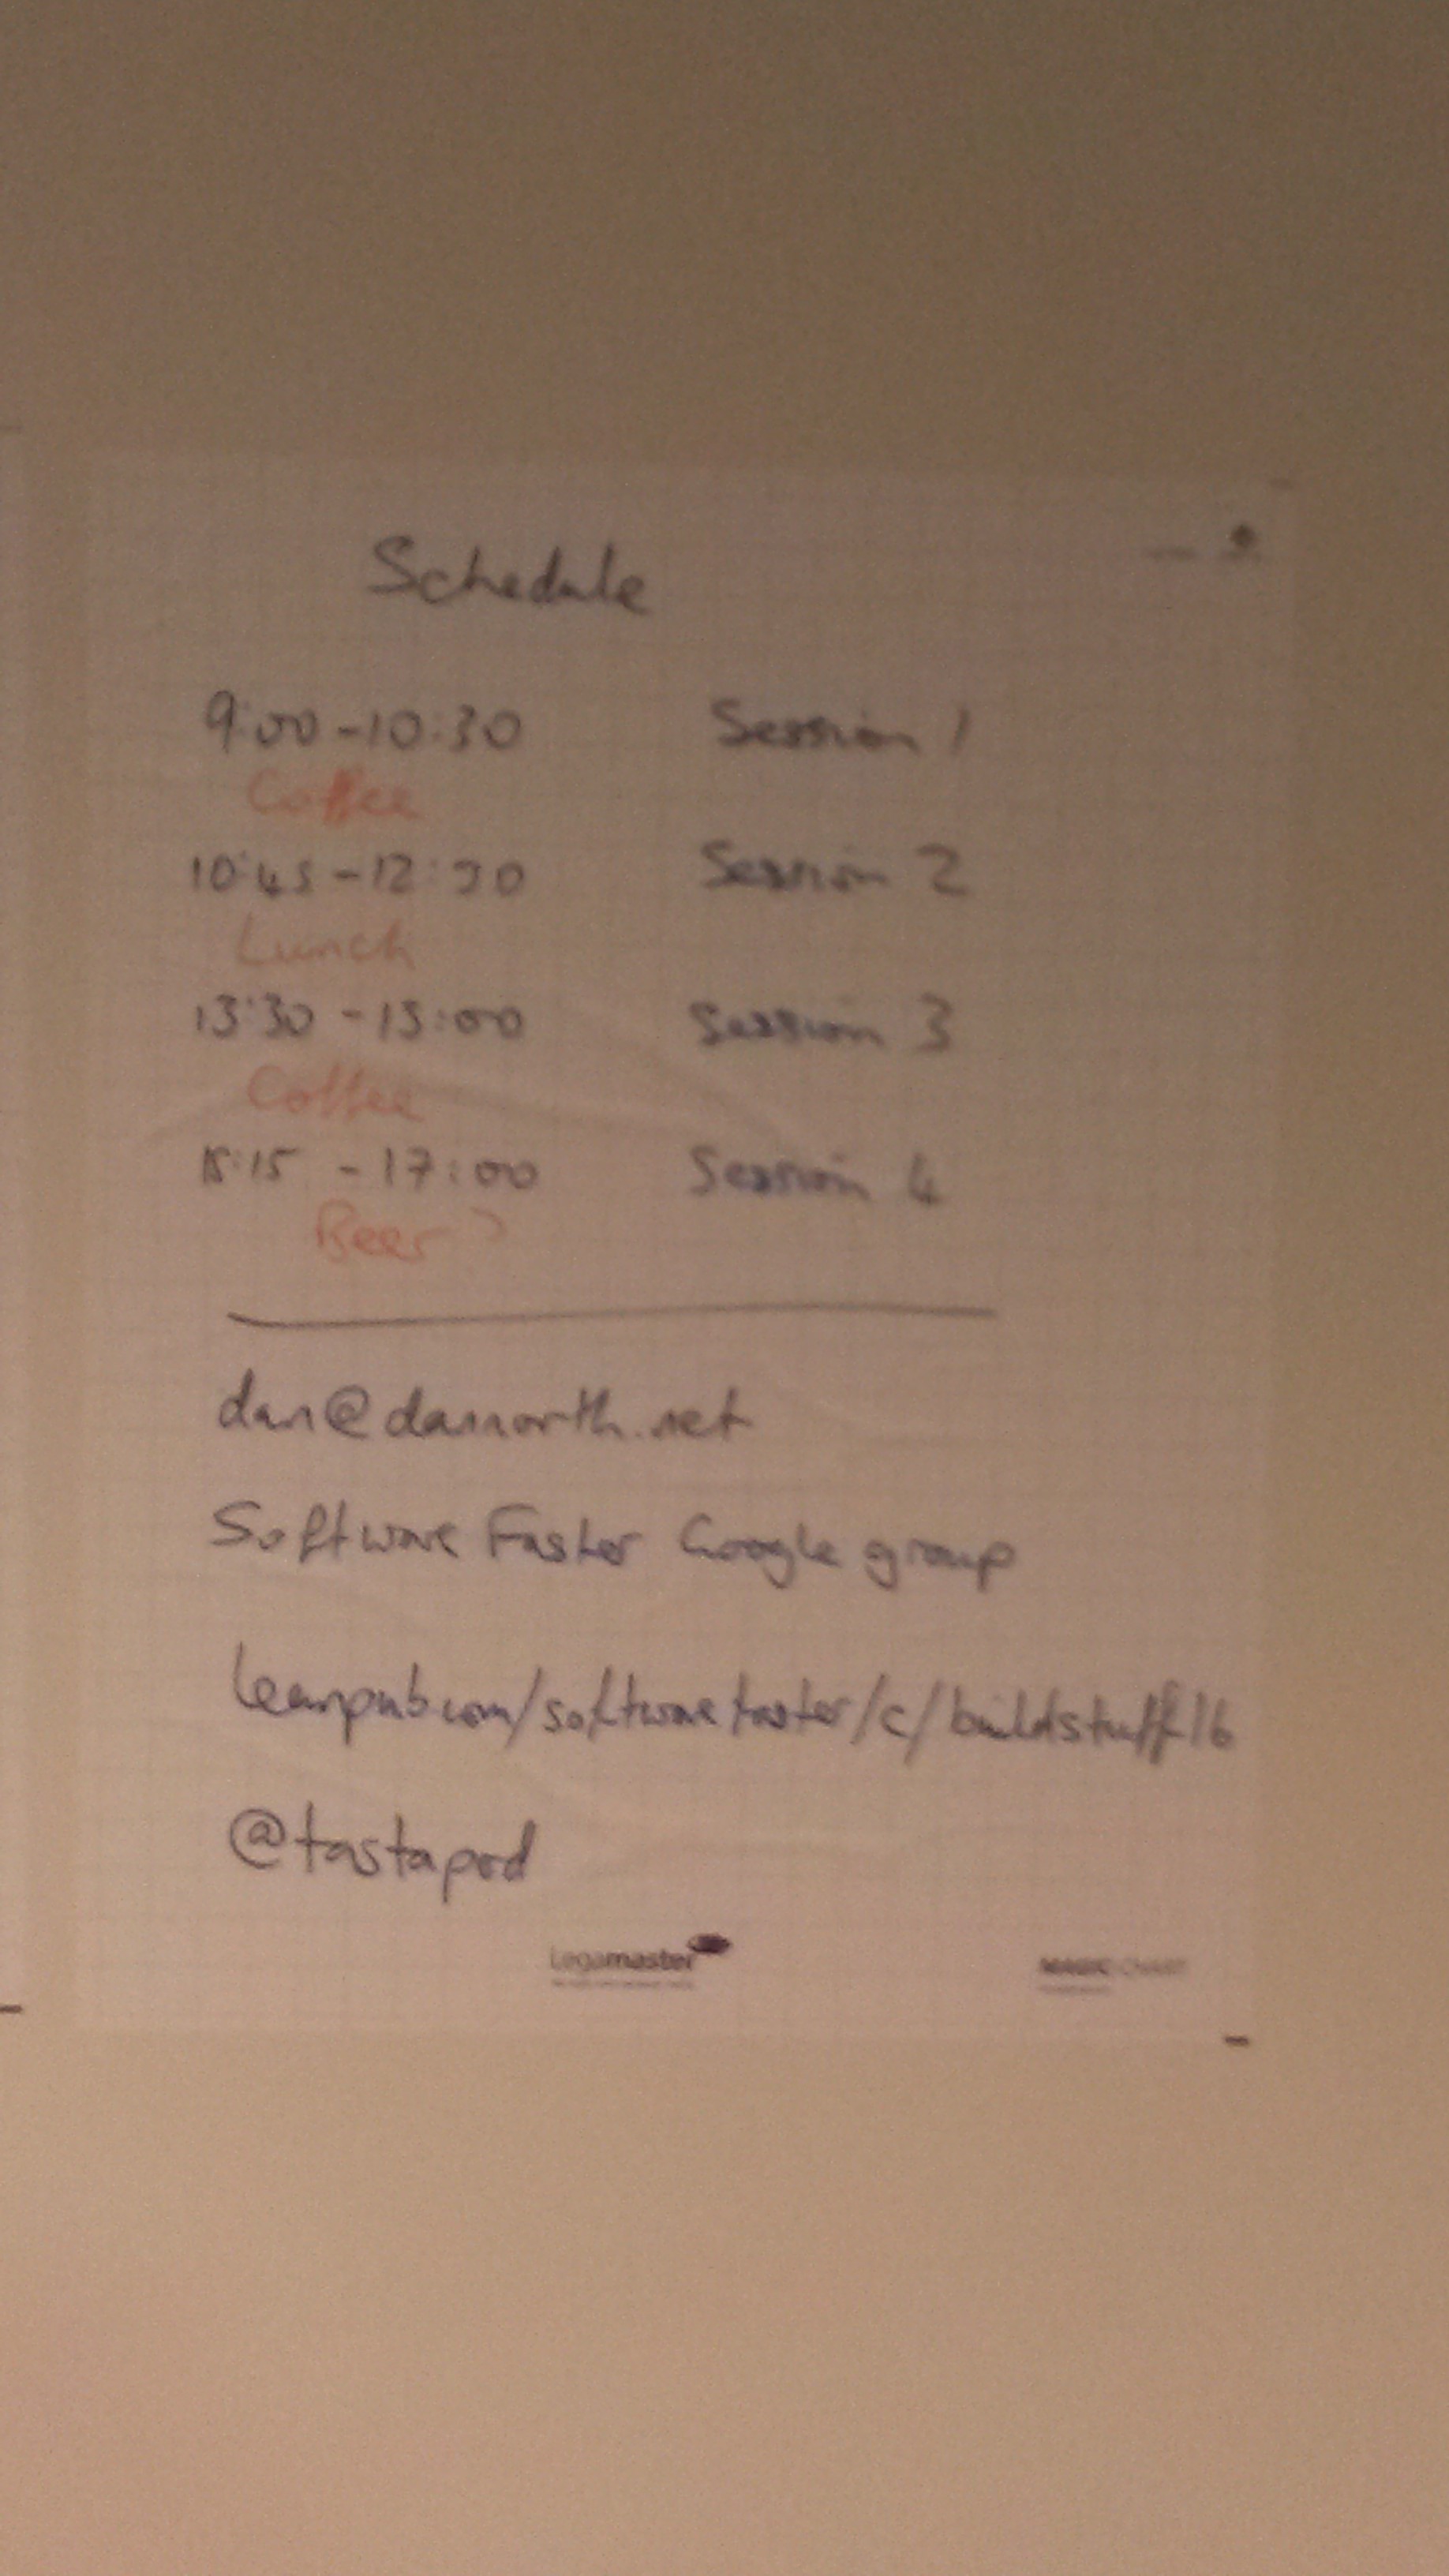 Schedule
9:00 - 10:30 Session 1
Coffee
10:45 - 12:30 Session 2
Lunch
13:30 - 15:00 Session 3
Coffee
15:15 - 17:00 Session 4
Beer?
dan@dannorth.net
Software Faster Google group
leanpub.com/softwarefaster/c/buildstuff16
@tastapod
Legamaster
MAGIC CHART